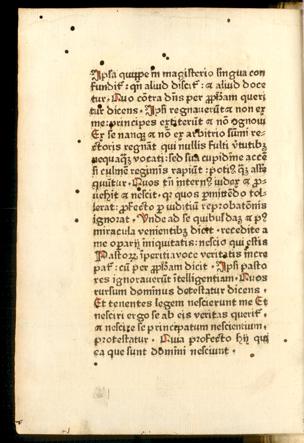 Ipsa quippe in magisterio lingua con
fundit̃ : qñ aliud discit̃ : ⁊ aliud doce
tur. Quo cõtra dñs per ꝓphãm queri
tur dicens. Ipsi regnauerũt ⁊ non ex
me: principes extiterũt ⁊ nõ ognoui
Ex se nanqꝫ ⁊ nõ ex arbitrio sũmi re-
ctoris regnãt qui nullis fulti v̓tutibꝫ
nequaqꝫ̃ vocati: sed sua cupidine accẽ
si culmẽ regiminis rapiũt : poti⁹ qꝫ̃ ass
quũtur. Quos tñ intern⁹ iudex ⁊ ꝓ-
uehit ⁊ nescit. qꝛ quos ꝑmittẽdo tol-
lerat: ꝓfecto ꝑ iuditiũ reprobatõnis
ignorat. Unde ad se quibusdã ⁊ p⁹
miracula venientibꝫ dicit. recedite a
me oparij iniquitatis: nescio qui estis
Pastorꝝ ĩperitia voce veritatis increpat̃ : cũ per ꝓphãm dicit. Ipsi pasto
res ignorauerũt ĩtelligentiam. Quos
rursum dominus detestatur dicens.
Et tenentes legem nescierunt me Et
nesciri ergo se ab eis veritas querit̃.
⁊ nescire se principatum nescientium,
protestatur. Quia profecto hij qui
ea que sunt domini nesciunt.